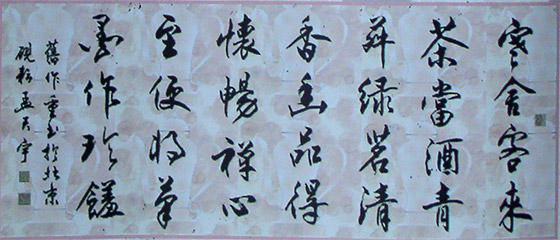 寒舍客來
茶當酒青
綠茗清
香幽品得
懷暢禪心
至便將筆
墨作珍饈
舊作重书於北京
硯 孟天宇